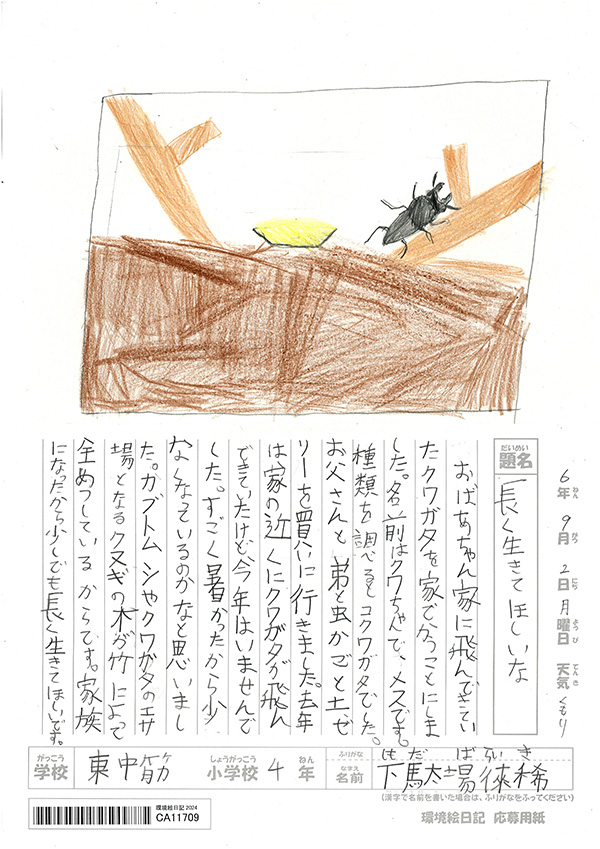 6年 9月 2日 月曜日 天気 くもり
ねん がつ にち ようび てんき
だいめい
題名
長く生きてほしいな
おばあちゃん家に飛んできてい
たクワガタを家でかうことにしま
した。名前はクワちゃんで、メスです。
種類を調べるとコクワガタでした。
お父さんと弟と虫かごと土ゼ
リーを買いに行きました。去年
は家の近くにクワガタが飛ん
できていたけど、今年はいませんで
した。すごく暑かったから少
なくなっているのかなと思いまし
た。カブトムシやクワガタのエサ
場となるクヌギの木が竹によって
全めつしているからです。家族
になったから少しでも長く生きてほしいです。
がっこう しょうがっこう ねん ふりがな
学校 東中筋 小学校 4 年
なまえ
名前 下馬太場徠稀
しもだ ば らいき
(漢字で名前を書いた場合は、ふりがなをふってください)
環境絵日記 2024
CA11709
環境絵日記 応募用紙